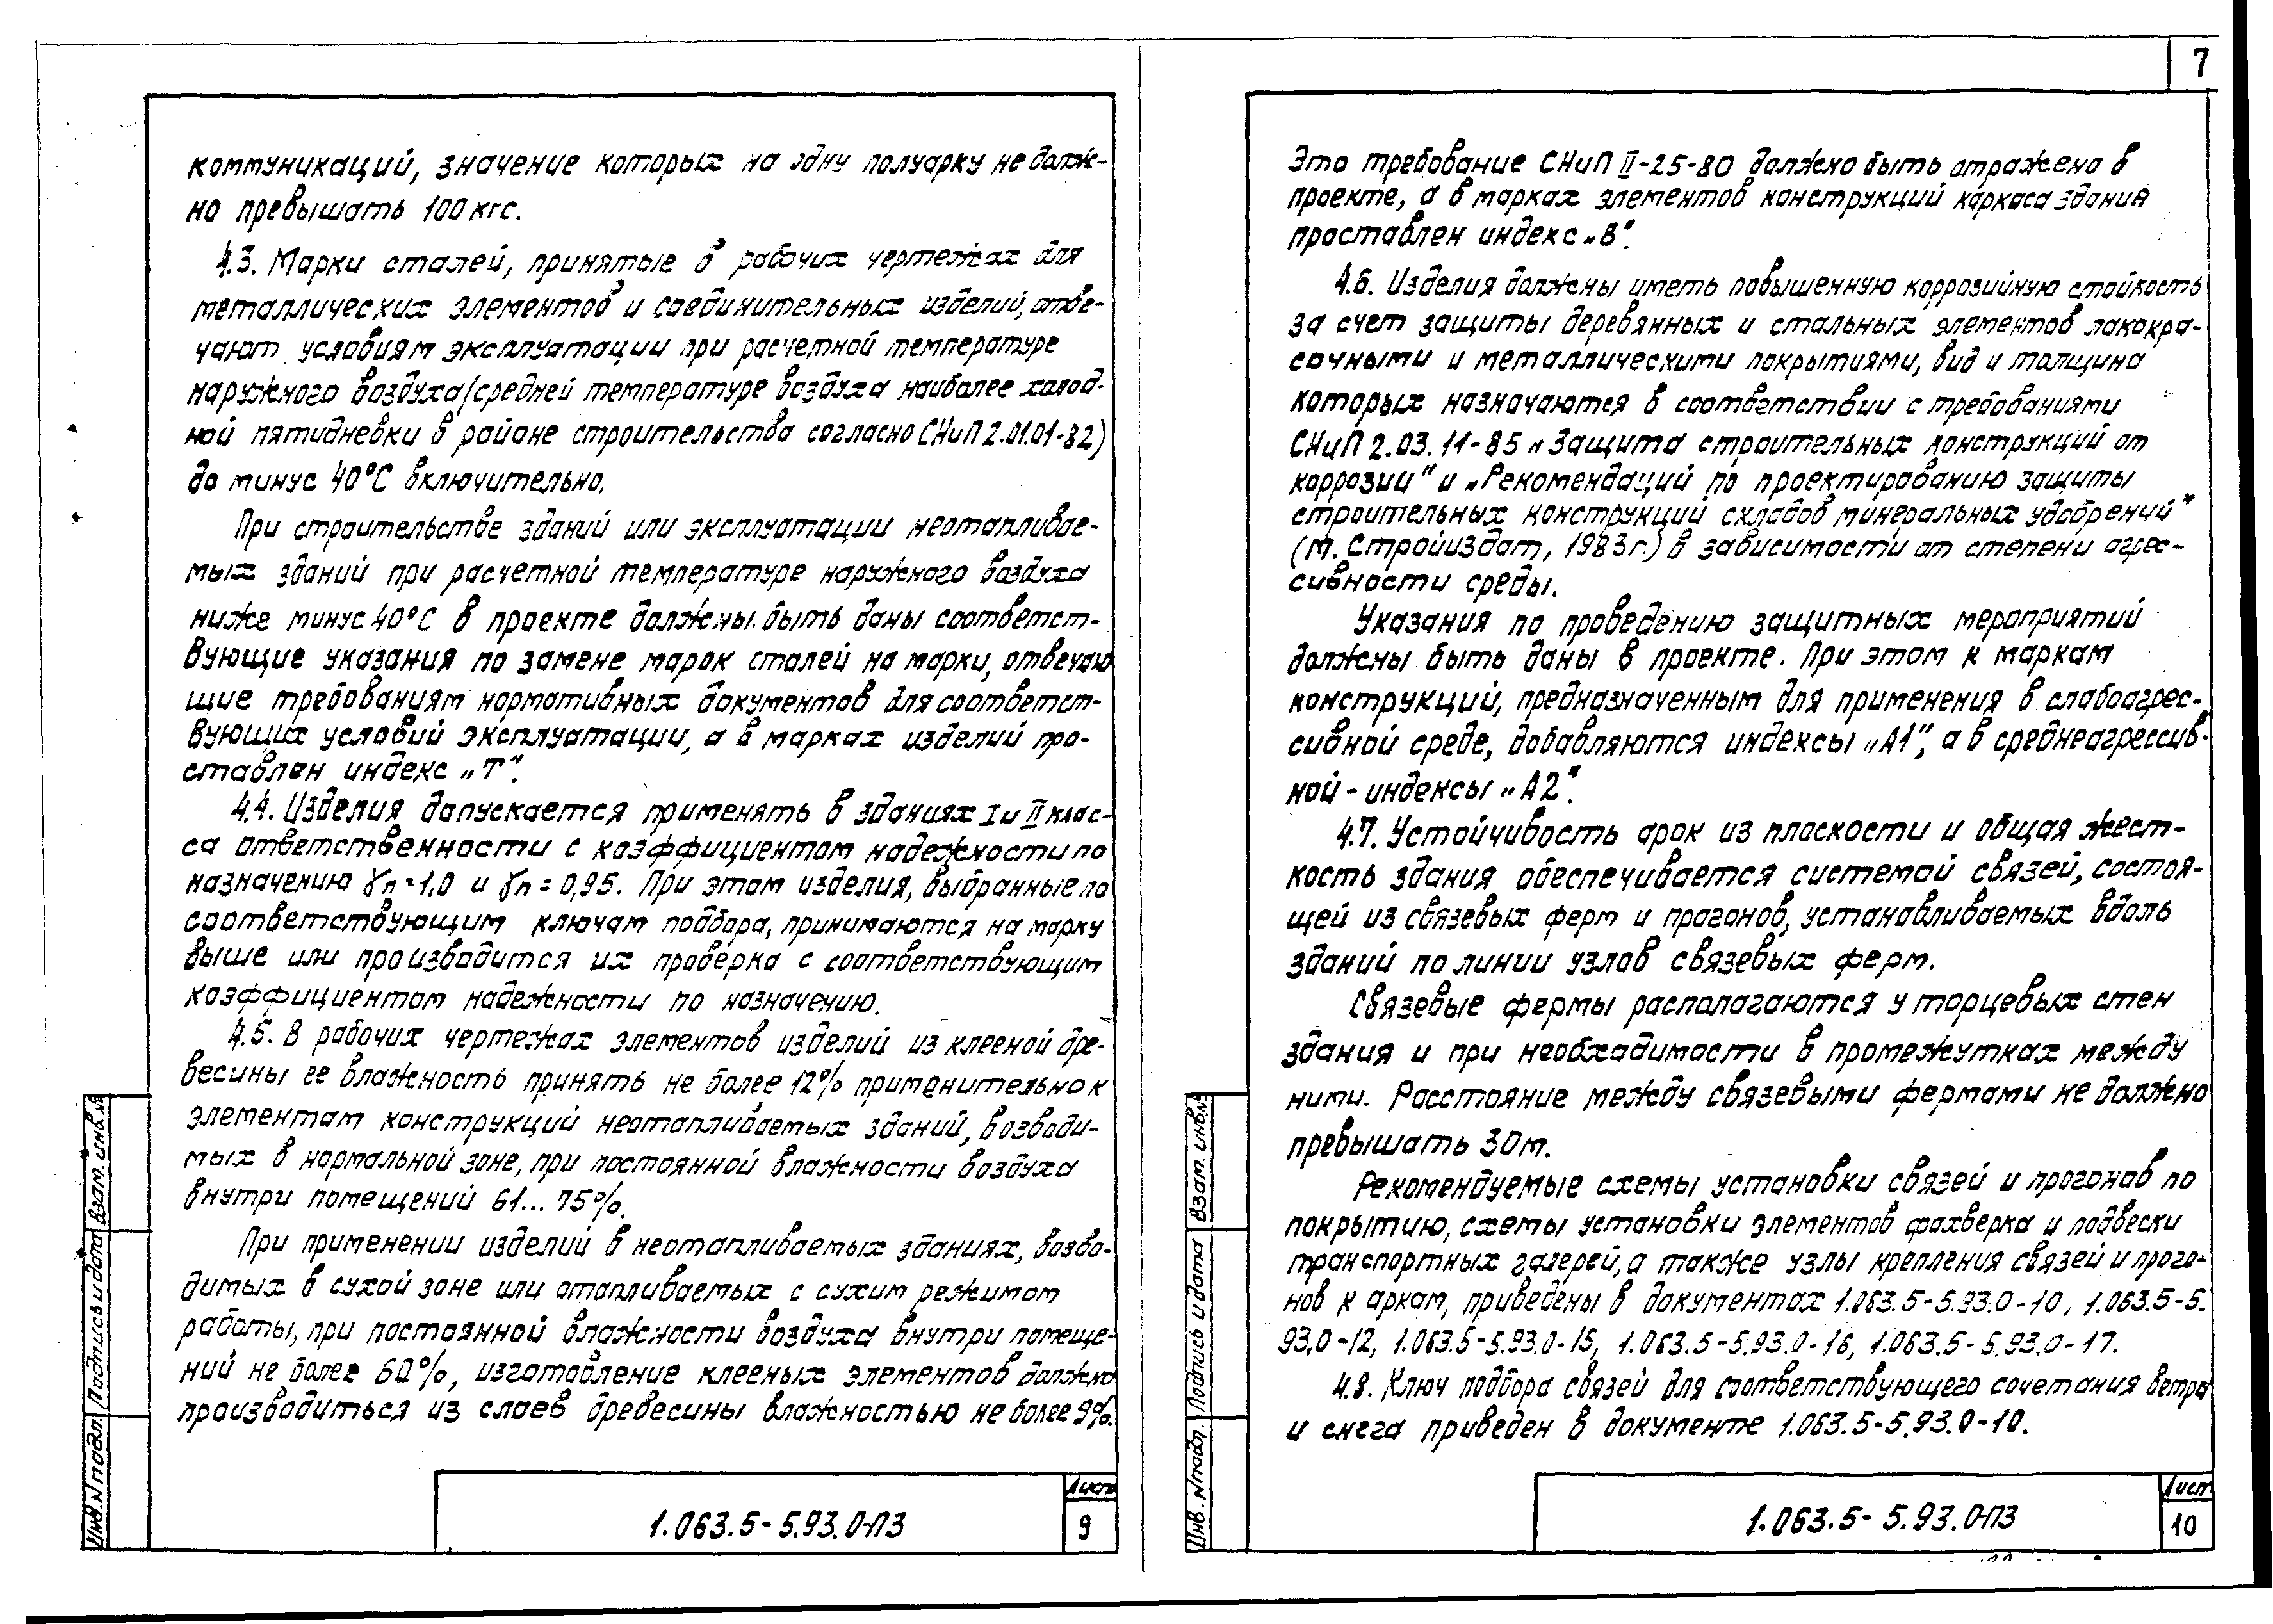 коммуникаций, значение которых на одну полуарку не долж-
но превышать 100 кгс.
4.3. Марки сталей, принятые в рабочих чертежах для
металлических элементов и соединительных изделий, отве-
чают условиям эксплуатации при расчетной температуре
наружного воздуха (средней температуре воздуха наиболее холод-
ной пятидневки в районе строительства согласно СНиП 2.01.01-82)
до минус 40°С включительно.
При строительстве зданий или эксплуатации неотапливае-
мых зданий при расчетной температуре наружного воздуха
ниже минус 40°С в проекте должны быть даны соответст-
вующие указания по замене марок сталей на марки, отвечаю
щие требованиям нормативных документов для соответст-
вующих условий эксплуатации, а в марках изделий про-
ставлен индекс „Т".
4.4. Изделия допускается применять в зданиях I и II клас-
са ответственности с коэффициентом надежности по
назначению γn=1,0 и γn=0,95. При этом изделия, выбранные по
соответствующим ключам подбора, принимаются на марку
выше или производится их проверка с соответствующим
коэффициентом надежности по назначению.
4.5. В рабочих чертежах элементов изделий из клееной дре-
весины ее влажность принять не более 12% применительно к
элементам конструкций неотапливаемых зданий, возводи-
мых в нормальной зоне, при постоянной влажности воздуха
внутри помещений 61... 75%.
При применении изделий в неотапливаемых зданиях, возво-
димых в сухой зоне или отапливаемых с сухим режимом
работы, при постоянной влажности воздуха внутри помеще-
ний не более 60%, изготовление клееных элементов должно
производиться из слоев древесины влажностью не более 9%.
1.063.5-5.93.0-ПЗ
Лист
9
Инв. N подл.
Подпись и дата
Взам. инв. №
7
Это требование СНиП II-25-80 должно быть отражено в
проекте, а в марках элементов конструкций каркаса здания
проставлен индекс „В".
4.6. Изделия должны иметь повышенную коррозийную стойкость
за счет защиты деревянных и стальных элементов лакокра-
сочными и металлическими покрытиями, вид и толщина
которых назначаются в соответствии с требованиями
СНиП 2.03.11-85 „Защита строительных конструкций от
коррозии" и „Рекомендаций по проектированию защиты
строительных конструкций складов минеральных удобрений"
(М. Стройиздат, 1983г.) в зависимости от степени агрес-
сивности среды.
Указания по проведению защитных мероприятий
должны быть даны в проекте. При этом к маркам
конструкций, предназначенным для применения в слабоагрес-
сивной среде, добавляются индексы „А1", а в среднеагрессив-
ной - индексы „А2".
4.7. Устойчивость арок из плоскости и общая жест-
кость здания обеспечивается системой связей, состоя-
щей из связевых ферм и прогонов, устанавливаемых вдоль
зданий по линии узлов связевых ферм.
Связевые фермы располагаются у торцевых стен
здания и при необходимости в промежутках между
ними. Расстояние между связевыми фермами не должно
превышать 30м.
Рекомендуемые схемы установки связей и прогонов по
покрытию, схемы установки элементов фахверка и подвески
транспортных галерей, а также узлы крепления связей и прого-
нов к аркам, приведены в документах 1.063.5-5.93.0-10, 1.063.5-5.
93.0-12, 1.063.5-5.93.0-15, 1.063.5-5.93.0-16, 1.063.5-5.93.0-17.
4.8. Ключ подбора связей для соответствующего сочетания ветра
и снега приведен в документе 1.063.5-5.93.0-10.
1.063.5-5.93.0-ПЗ
Лист
10
Инв. N подл.
Подпись и дата
Взам. инв. №